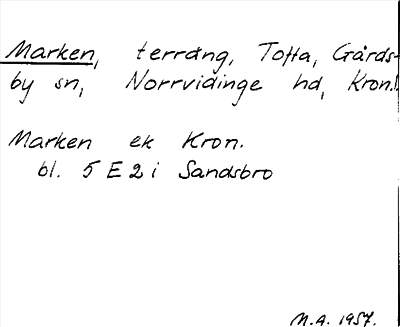 Marken, terräng, Tofta, Gårds-
by sn, Norrvidinge hd, Kron.l
Marken ek Kron.
bl. 5 E 2 i Sandsbro
M.A. 1957.